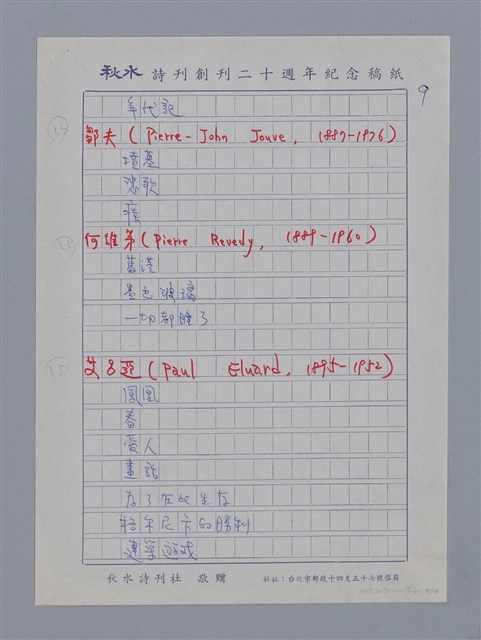 秋水 詩刊創刊二十週年紀念稿紙
9
年代記
鄒夫 (Pierre-John Jouve, 1887-1976)
墳墓
悲歌
何維第 (Pierre Revedy, 1889-1960)
舊港
墨色玻璃
一切都睡了
艾呂亞 (Paul Eluard, 1895-1952)
鳳凰
春
愛人
畫話
為了在此生存
格尔尼卡的勝利
建築遊戏
秋水詩刊社 敬贈 社址:台北市郵政十四支五十七號信箱